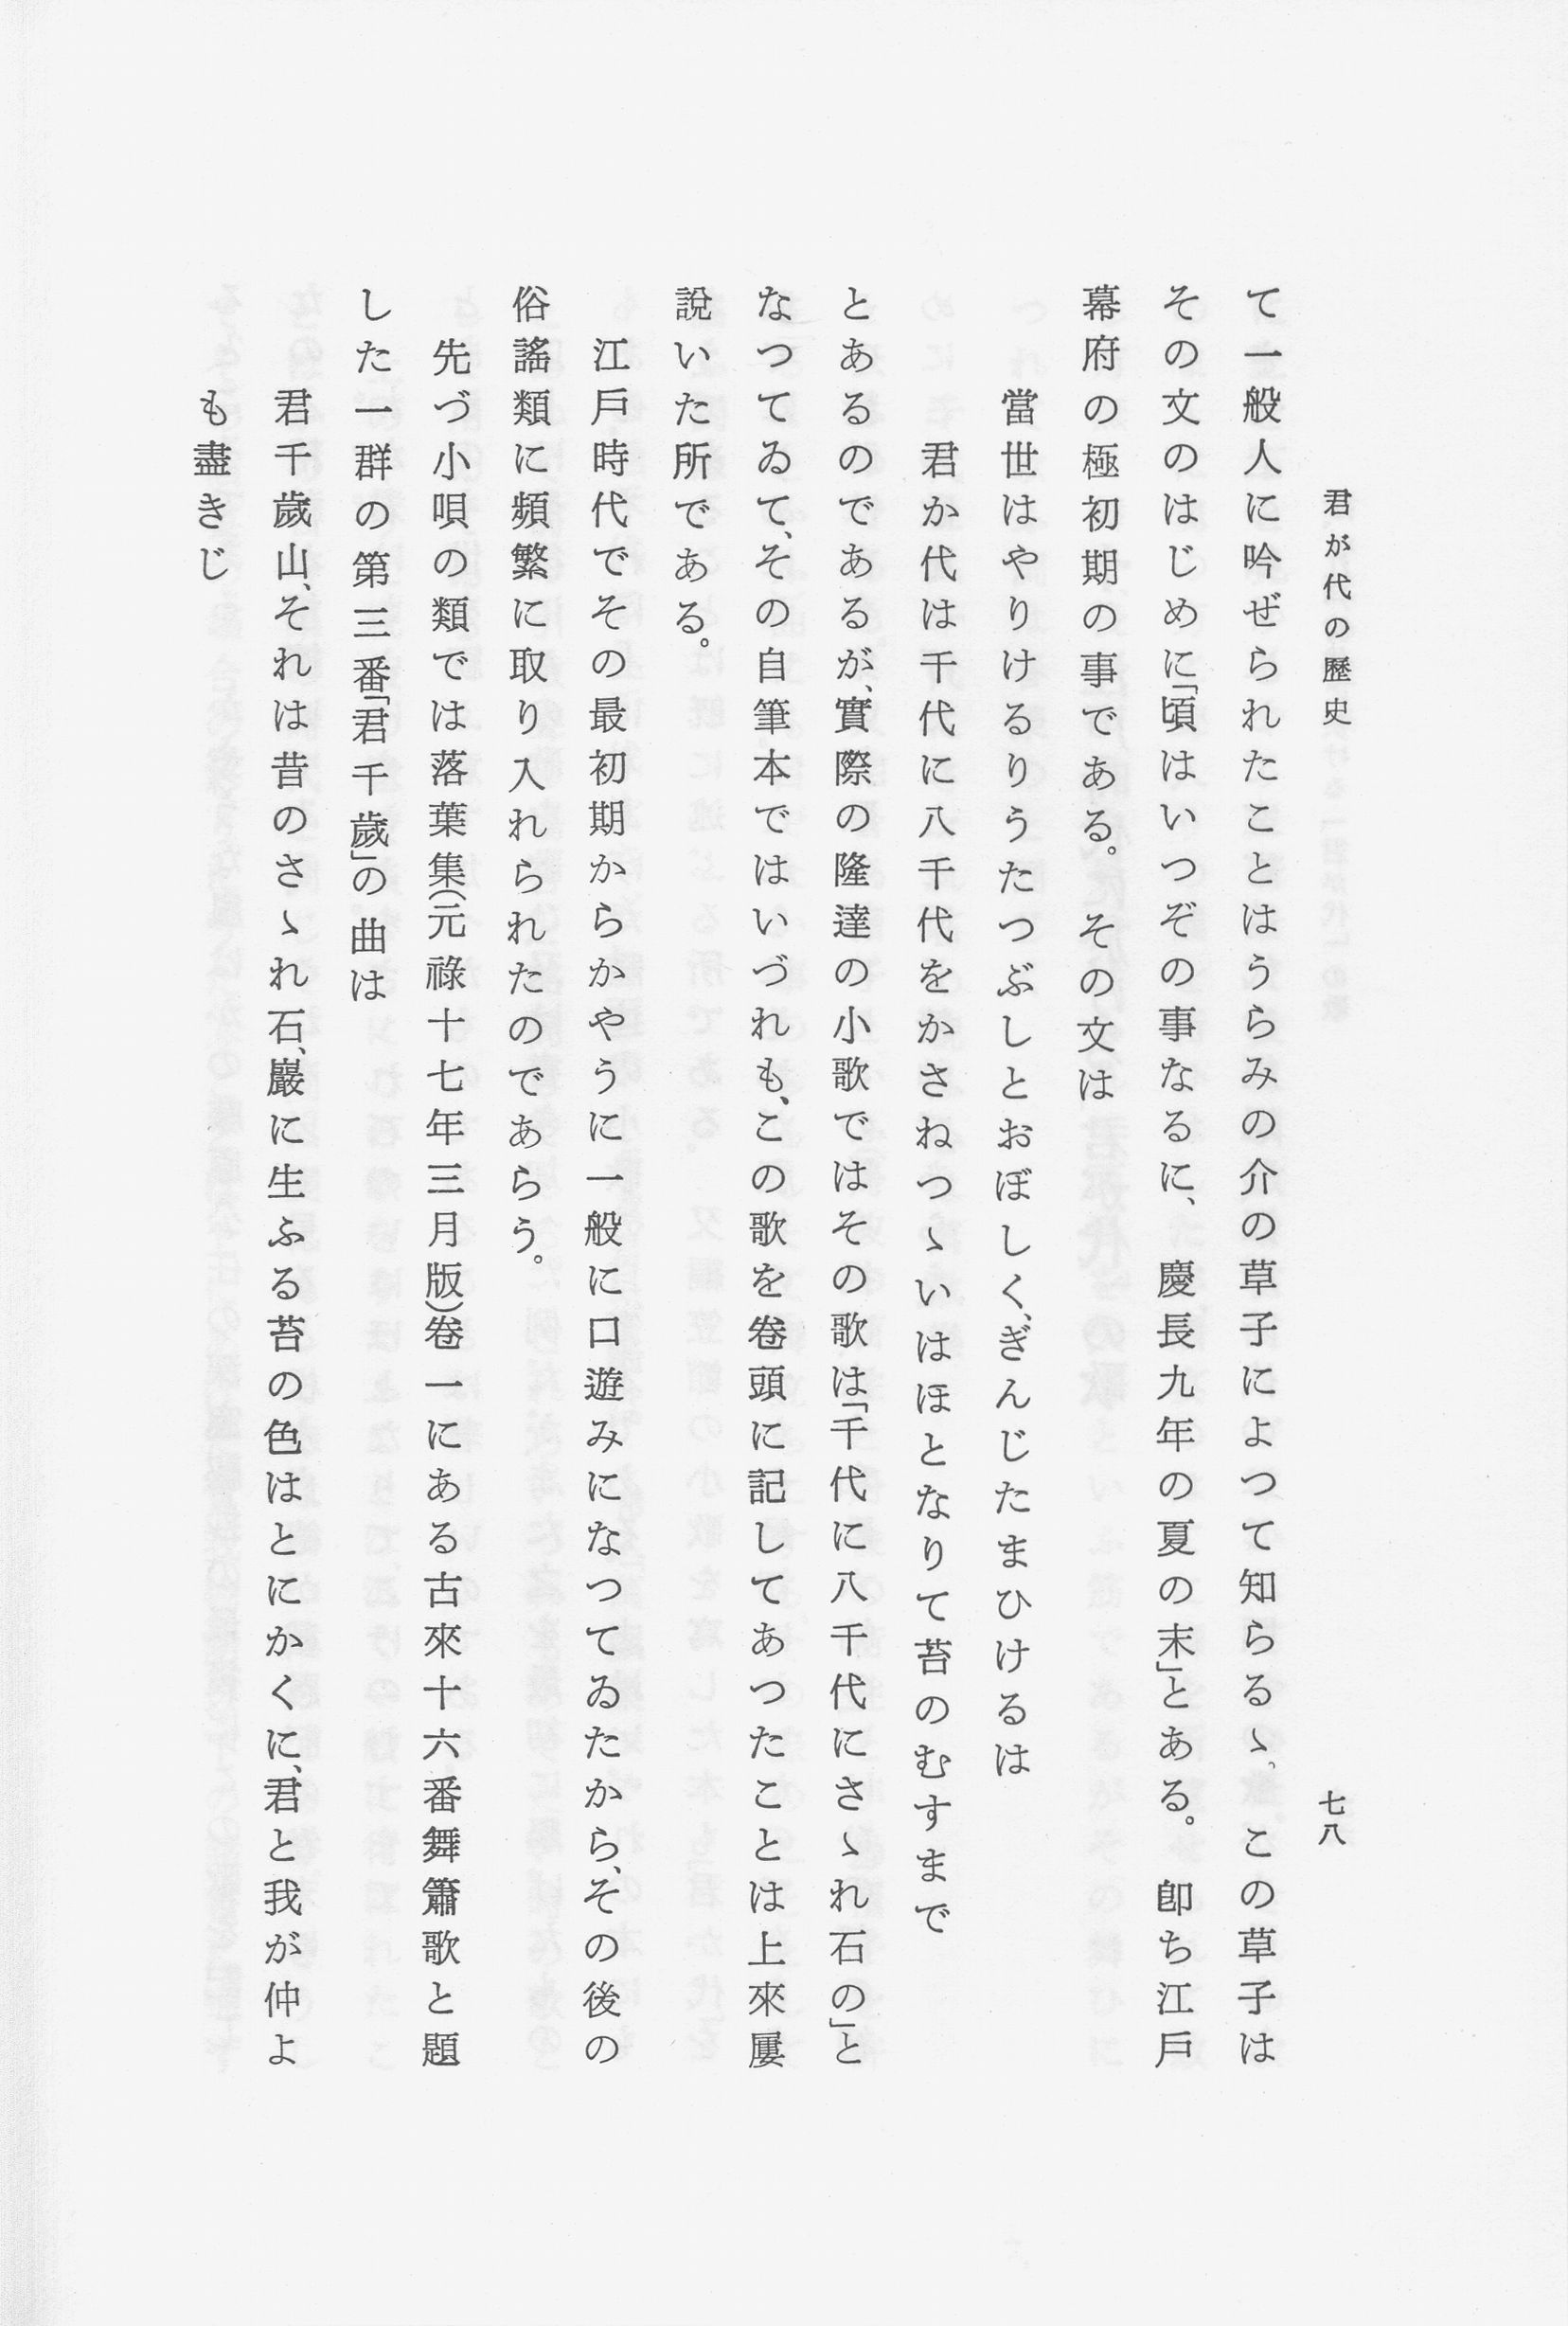 君が代の歷史
七八
て一般人に吟ぜられたことはうらみの介の草子によつて知らるゝ。この草子は
その文のはじめに「頃はいつぞの事なるに、慶長九年の夏の末」とある。卽ち江戶
幕府の極初期の事である。その文は
當世はやりけるりうたつぶしとおぼしく、ぎんじたまひけるは
君か代は千代に八千代をかさねつゝいはほとなりて苔のむすまで
とあるのであるが、實際の隆達の小歌ではその歌は「千代に八千代にさゝれ石の」と
なつてゐて、その自筆本ではいづれも、この歌を卷頭に記してあつたことは上來屢
說いた所である。
江戶時代でその最初期からかやうに一般に口遊みになつてゐたから、その後の
俗謠類に頻繁に取り入れられたのであらう。
先づ小唄の類では落葉集(元祿十七年三月版)卷一にある古來十六番舞簫歌と題
した一群の第三番「君千歲」の曲は
君千歲山、それは昔のさゝれ石、巖に生ふる苔の色はとにかくに、君と我が仲よ
も盡きじ